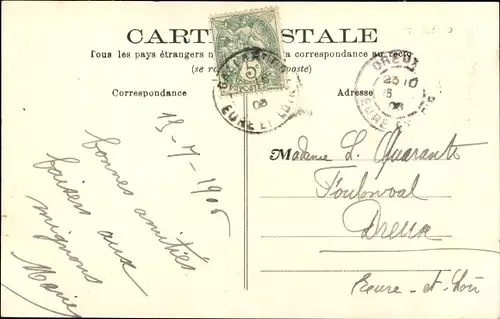 CARTE POSTALE
Tous les pays étrangers n' la correspondance au recto
(se re poste)
Correspondance
Adresse
5c
POSTES
EURE ET LOIR
08
DREUX
23 10
08
EURE ET
13-7-1906
bonnes amitiés
baisers aux
mignons
Marie
Madame L. Quarante
Foulonval
Dreux
Eure-et-Loir